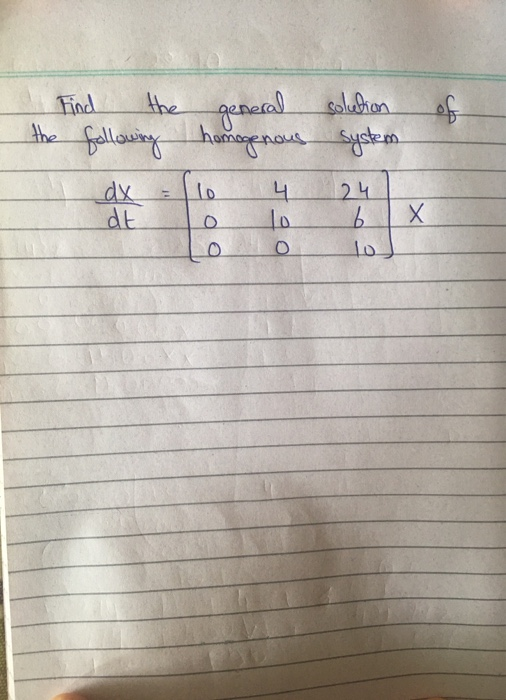 Find the general solution of
the following homogenous system
dx/dt = [10 4 24
0 10 6
0 0 10] X